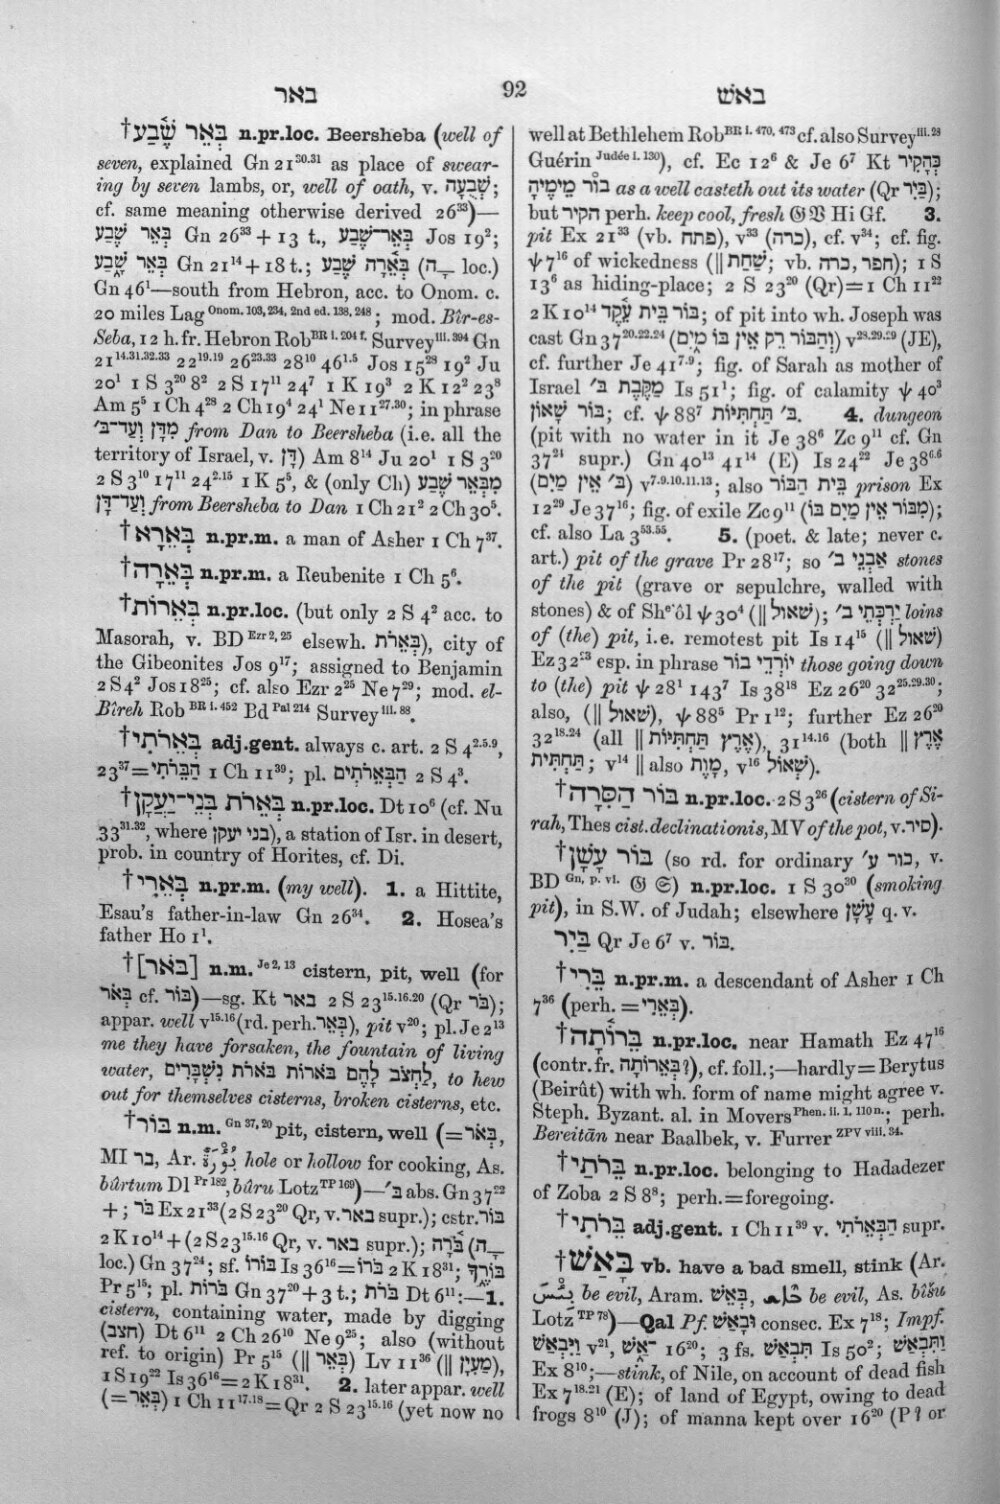 באר 92 באשׁ
†בְּאֵר שֶׁ֫בַע n.pr.loc. Beersheba (well of
seven, explained Gn 21³⁰·³¹ as place of swear-
ing by seven lambs, or, well of oath, v. שְׁבֻעָה;
cf. same meaning otherwise derived 26³³)—
בְּאֵר שֶׁבַע Gn 26³³ + 13 t., בְּאֵר־שֶׁבַע Jos 19²;
בְּאֵר שָׁ֑בַע Gn 21¹⁴ + 18 t.; בְּאֵ֫רָה שֶּׁבַע (ה ָ loc.)
Gn 46¹—south from Hebron, acc. to Onom. c.
20 miles Lag Onom. 103, 234, 2nd ed. 138, 248; mod. Bîr-es-
Seba, 12 h. fr. Hebron Rob BR i. 204 f. Survey iii. 394 Gn
21¹⁴·³¹·³²·³³ 22¹⁹·¹⁹ 26²³·³³ 28¹⁰ 46¹·⁵ Jos 15²⁸ 19² Ju
20¹ 1 S 3²⁰ 8² 2 S 17¹¹ 24⁷ 1 K 19³ 2 K 12² 23⁸
Am 5⁵ 1 Ch 4²⁸ 2 Ch 19⁴ 24¹ Ne 11²⁷·³⁰; in phrase
מִדָּן וְעַד־ב׳ from Dan to Beersheba (i.e. all the
territory of Israel, v. דָּן) Am 8¹⁴ Ju 20¹ 1 S 3²⁰
2 S 3¹⁰ 17¹¹ 24²·¹⁵ 1 K 5⁵, & (only Ch) מִבְּאֵר שֶׁבַע
וְעַד־דָּן from Beersheba to Dan 1 Ch 21² 2 Ch 30⁵.
†בְּאֵרָא n.pr.m. a man of Asher 1 Ch 7³⁷.
†בְּאֵרָה n.pr.m. a Reubenite 1 Ch 5⁶.
†בְּאֵרוֹת n.pr.loc. (but only 2 S 4² acc. to
Masorah, v. BD Ezr 2, 25 elsewh. בְּאֵרֹת), city of
the Gibeonites Jos 9¹⁷; assigned to Benjamin
2 S 4² Jos 18²⁵; cf. also Ezr 2²⁵ Ne 7²⁹; mod. el-
Bîreh Rob BR i. 452 Bd Pal 214 Survey iii. 88.
†בְּאֵרֹתִי adj.gent. always c. art. 2 S 4²·⁵·⁹,
23³⁷ = הַבֵּרֹתִי 1 Ch 11³⁹; pl. הַבְּאֵרֹתִים 2 S 4³.
†בְּאֵרֹת בְּנֵי־יַעֲקָן n.pr.loc. Dt 10⁶ (cf. Nu
33³¹·³², where בני יעקן), a station of Isr. in desert,
prob. in country of Horites, cf. Di.
†בְּאֵרִי n.pr.m. (my well). 1. a Hittite,
Esau's father-in-law Gn 26³⁴. 2. Hosea's
father Ho 1¹.
†[בֹּאר] n.m. Je 2, 13 cistern, pit, well (for
בְּאֹר cf. בּוֹר)—sg. Kt באר 2 S 23¹⁵·¹⁶·²⁰ (Qr בֹּר);
appar. well v¹⁵·¹⁶ (rd. perh. בְּאֵר), pit v²⁰; pl. Je 2¹³
me they have forsaken, the fountain of living
water, לַחְצֹב לָהֶם בֹּארוֹת בֹּארֹת נִשְׁבָּרִים, to hew
out for themselves cisterns, broken cisterns, etc.
†בּוֹר n.m. Gn 37, 20 pit, cistern, well (= בְּאֹר,
MI בר, Ar. hole or hollow for cooking, As.
bûrtum Dl Pr 182, bûru Lotz TP 169)—ב׳ abs. Gn 37²²
+ ; בֹּר Ex 21³³ (2 S 23²⁰ Qr, v. באר supr.); cstr. בּוֹר
2 K 10¹⁴ + (2 S 23¹⁵·¹⁶ Qr, v. באר supr.); בֹּ֫רָה (ה ָ
loc.) Gn 37²⁴; sf. בּוֹרוֹ Is 36¹⁶ = בֹּרוֹ 2 K 18³¹; בּוֹרֶ֑ךָ
Pr 5¹⁵; pl. בֹּרוֹת Gn 37²⁰ + 3 t.; בֹּרֹת Dt 6¹¹:—1.
cistern, containing water, made by digging
(חצב) Dt 6¹¹ 2 Ch 26¹⁰ Ne 9²⁵; also (without
ref. to origin) Pr 5¹⁵ (|| בְּאֵר) Lv 11³⁶ (|| מַעְיָן),
1 S 19²² Is 36¹⁶ = 2 K 18³¹. 2. later appar. well
(= בְּאֵר) 1 Ch 11¹⁷·¹⁸ = Qr 2 S 23¹⁵·¹⁶ (yet now no
well at Bethlehem Rob BR i. 470, 473 cf. also Survey iii. 28
Guérin Judée i. 130), cf. Ec 12⁶ & Je 6⁷ Kt כְּהָקִיר
בּוֹר מֵימֶיהָ as a well casteth out its water (Qr בַּיִר);
but הקיר perh. keep cool, fresh 𝔊 𝔙 Hi Gf. 3.
pit Ex 21³³ (vb. פתח), v³³ (כרה), cf. v³⁴; cf. fig.
ψ 7¹⁶ of wickedness (|| שַׁחַת; vb. חפר, כרה); 1 S
13⁶ as hiding-place; 2 S 23²⁰ (Qr) = 1 Ch 11²²
2 K 10¹⁴ בּוֹר בֵּית עֵ֫קֶד; of pit into wh. Joseph was
cast Gn 37²⁰·²²·²⁴ (וְהַבּוֹר רֵק אֵין בּוֹ מָ֑יִם) v²⁸·²⁹·²⁹ (JE),
cf. further Je 41⁷·⁹; fig. of Sarah as mother of
Israel מַקֶּבֶת ב׳ Is 51¹; fig. of calamity ψ 40³
בּוֹר שָׁאוֹן; cf. ψ 88⁷ ב׳ תַּחְתִּיּוֹת. 4. dungeon
(pit with no water in it Je 38⁶ Zc 9¹¹ cf. Gn
37²⁴ supr.) Gn 40¹³ 41¹⁴ (E) Is 24²² Je 38⁶·⁶
(ב׳ אֵין מַיִם) v⁷·⁹·¹⁰·¹¹·¹³; also בֵּית הַבּוֹר prison Ex
12²⁹ Je 37¹⁶; fig. of exile Zc 9¹¹ (מִבּוֹר אֵין מַיִם בּוֹ);
cf. also La 3⁵³·⁵⁵. 5. (poet. & late; never c.
art.) pit of the grave Pr 28¹⁷; so אַבְנֵי ב׳ stones
of the pit (grave or sepulchre, walled with
stones) & of Shᵉʾôl ψ 30⁴ (|| שאול); יַרְכְּתֵי ב׳ loins
of (the) pit, i.e. remotest pit Is 14¹⁵ (|| שאול)
Ez 32²³ esp. in phrase יוֹרְדֵי בוֹר those going down
to (the) pit ψ 28¹ 143⁷ Is 38¹⁸ Ez 26²⁰ 32²⁵·²⁹·³⁰;
also, (|| שאול), ψ 88⁵ Pr 1¹²; further Ez 26²⁰
32¹⁸·²⁴ (all || אֶרֶץ תַּחְתִּיּוֹת), 31¹⁴·¹⁶ (both || אֶרֶץ
תַּחְתִּית; v¹⁴ || also מָוֶת, v¹⁶ שְׁאוֹל).
†בּוֹר הַסִּרָה n.pr.loc. 2 S 3²⁶ (cistern of Si-
rah, Thes cist. declinationis, MV of the pot, v. סיר).
†בּוֹר עָשָׁן (so rd. for ordinary כור ע׳, v.
BD Gn, p. vi. 𝔊 𝔖) n.pr.loc. 1 S 30³⁰ (smoking
pit), in S.W. of Judah; elsewhere עָשָׁן q. v.
בַּיִר Qr Je 6⁷ v. בּוֹר.
†בֵּרִי n.pr.m. a descendant of Asher 1 Ch
7³⁶ (perh. = בְּאֵרִי).
†בֵּר֫וֹתָה n.pr.loc. near Hamath Ez 47¹⁶
(contr. fr. בְּאֵרוֹתָה?), cf. foll.;—hardly = Berytus
(Beirût) with wh. form of name might agree v.
Steph. Byzant. al. in Movers Phen. ii. 1. 110 n.; perh.
Bereitān near Baalbek, v. Furrer ZPV viii. 34.
†בֵּרֹתַי n.pr.loc. belonging to Hadadezer
of Zoba 2 S 8⁸; perh. = foregoing.
†בֵּרֹתִי adj.gent. 1 Ch 11³⁹ v. הַבְּאֵרֹתִי supr.
†בָּאַשׁ vb. have a bad smell, stink (Ar.
be evil, Aram. בְּאֵישׁ, be evil, As. bîšu
Lotz TP 78)—Qal Pf. וּבָאַשׁ consec. Ex 7¹⁸; Impf.
וַיִּבְאַשׁ v²¹, ־אַשׁ 16²⁰; 3 fs. תִּבְאַשׁ Is 50²; וַתִּבְאַשׁ
Ex 8¹⁰;—stink, of Nile, on account of dead fish
Ex 7¹⁸·²¹ (E); of land of Egypt, owing to dead
frogs 8¹⁰ (J); of manna kept over 16²⁰ (P? or